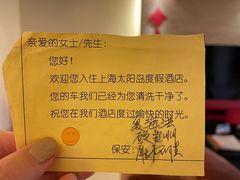 亲爱的女士/先生：
您好！
欢迎您入住上海太阳岛度假酒店。
您的车我们已经为您清洗干净了。
祝您在我们酒店度过愉快的时光。
保安：